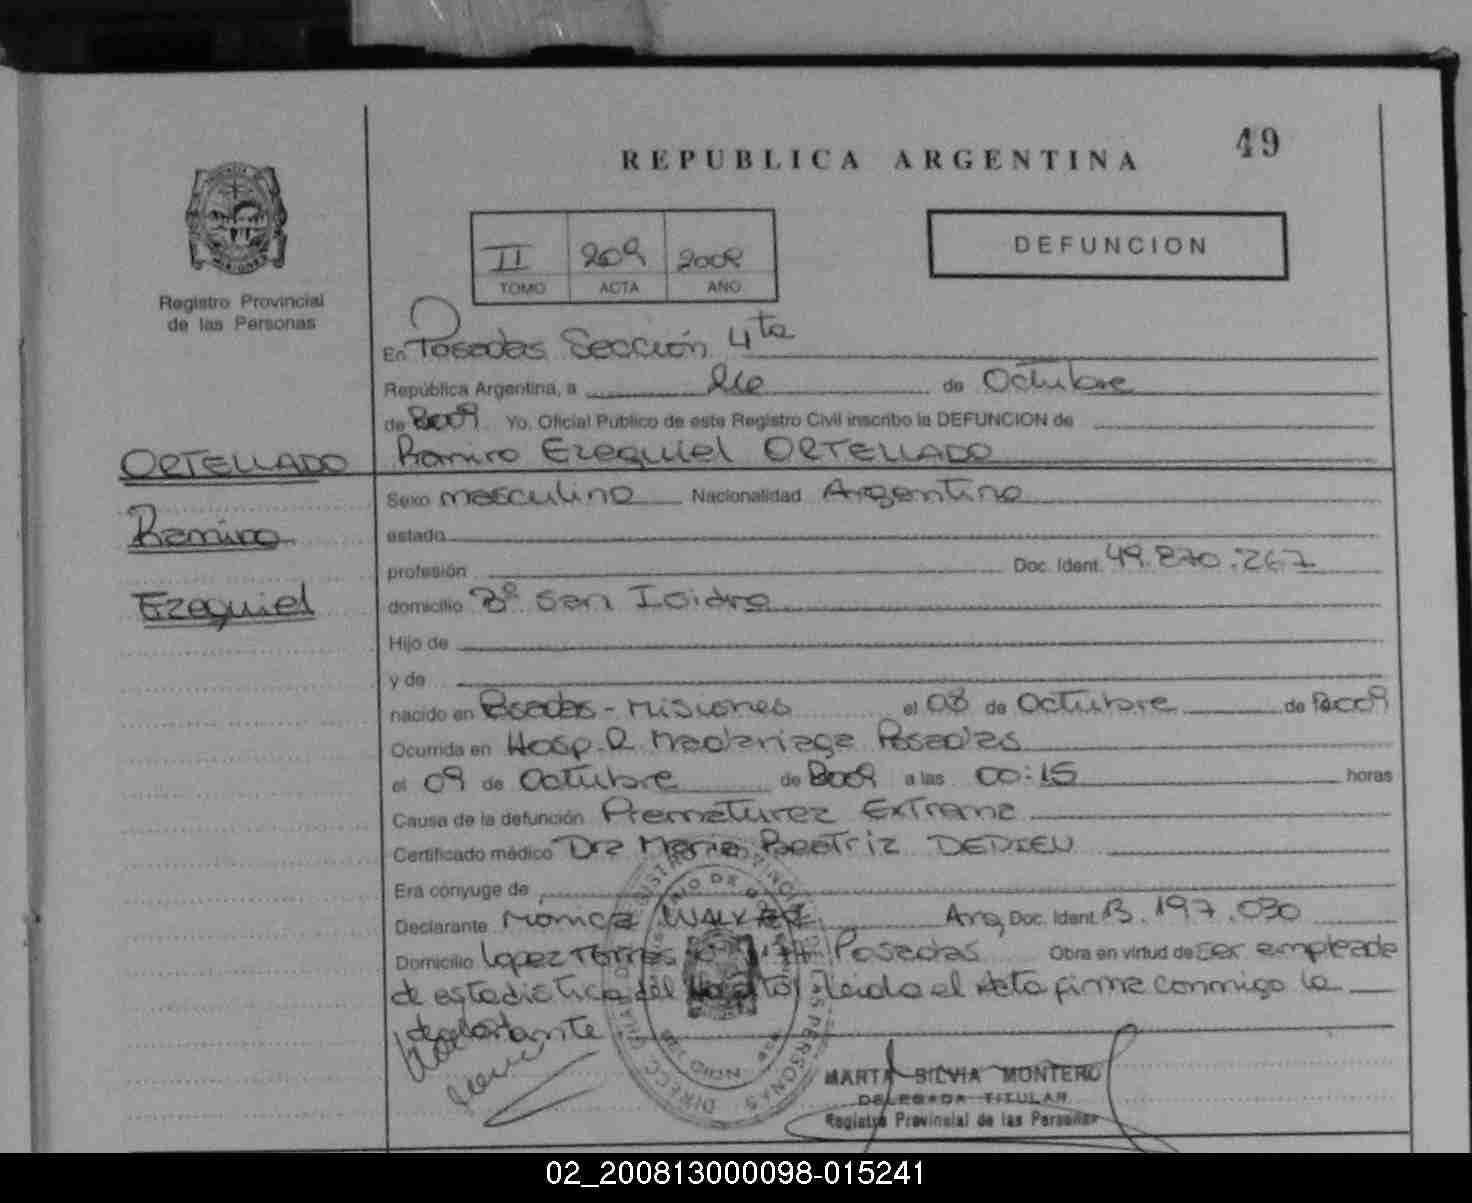 49
REPUBLICA ARGENTINA
DEFUNCION
II 209 2009
TOMO ACTA AÑO
MISIONES
Registro Provincial
de las Personas
En Posadas Sección 4ta
República Argentina, a de Octubre
de 2009 Yo, Oficial Público de este Registro Civil inscribo la DEFUNCION de
ORTELLADO Ramiro Ezequiel ORTELLADO
Sexo masculino Nacionalidad Argentina
Ramiro
estado
profesión Doc. Ident. 49.870.267
Ezequiel
domicilio Bº San Isidro
Hijo de
y de
nacido en Posadas - Misiones el 08 de Octubre de 2009
Ocurrida en Hosp. R. Madariaga Posadas
el 09 de Octubre de 2009 a las 00:15 horas
Causa de la defunción Prematurez Extrema
Certificado médico Dra Maria Beatriz DEDIEU
Era cónyuge de
Declarante Monica Arg. Doc. Ident. 13.197.030
Domicilio Lopez Torres Posadas Obra en virtud de ser empleada
de estadistica del leida el Acta firma conmigo la
declarante
MARTA SILVIA MONTERO
DELEGADA TITULAR
Registro Provincial de las Personas
02_200813000098-015241